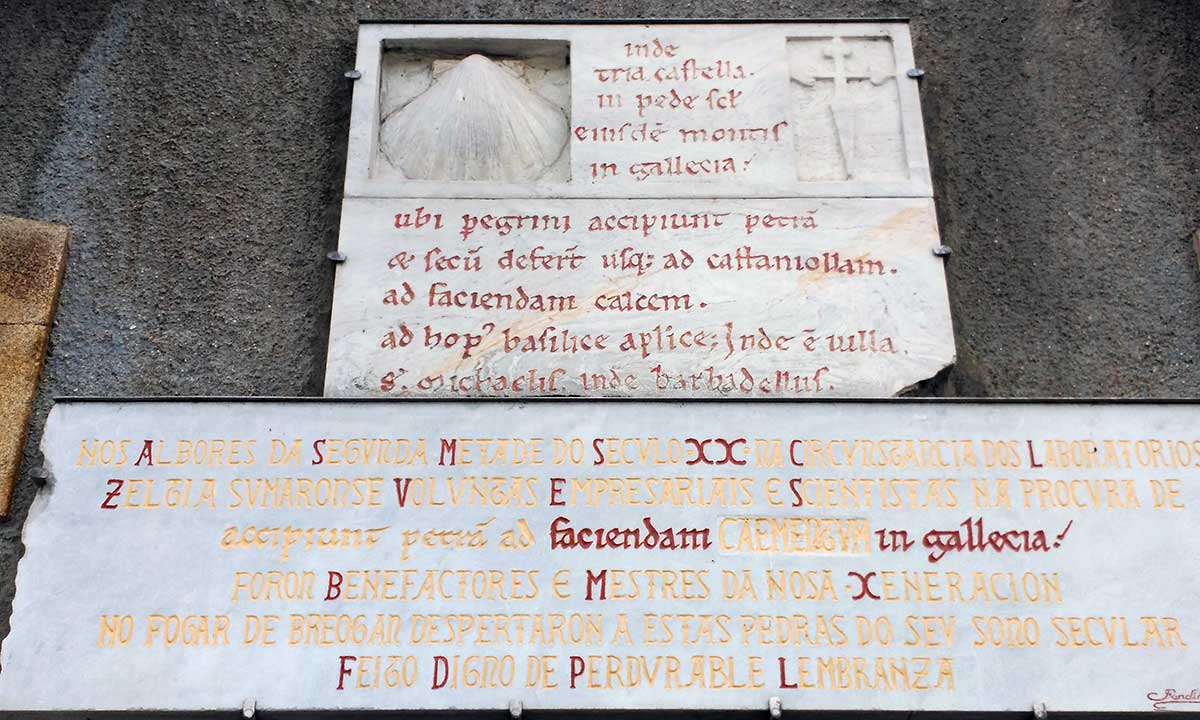 inde
tria castella.
in pede scl
eiusdē montis
in gallecia!
ubi pegrini accipiunt petrā
& secū defert usq; ad castaniollam.
ad faciendam calcem.
ad hop⁹ basilice aplice; Inde ē villa
s. Michaelis. inde barbadellus.
NOS ALBORES DA SEGUNDA METADE DO SECULO XX NA CIRCUNSTANCIA DOS LABORATORIOS
ZELTIA SUMARONSE VOLUNTAS EMPRESARIAIS E SCIENTISTAS NA PROCURA DE
accipiunt petrā ad faciendam CAEMENTUM in gallecia!
FORON BENEFACTORES E MESTRES DA NOSA XENERACION
NO FOGAR DE BREOGAN DESPERTARON A ESTAS PEDRAS DO SEU SONO SECULAR
FEITO DIGNO DE PERDURABLE LEMBRANZA